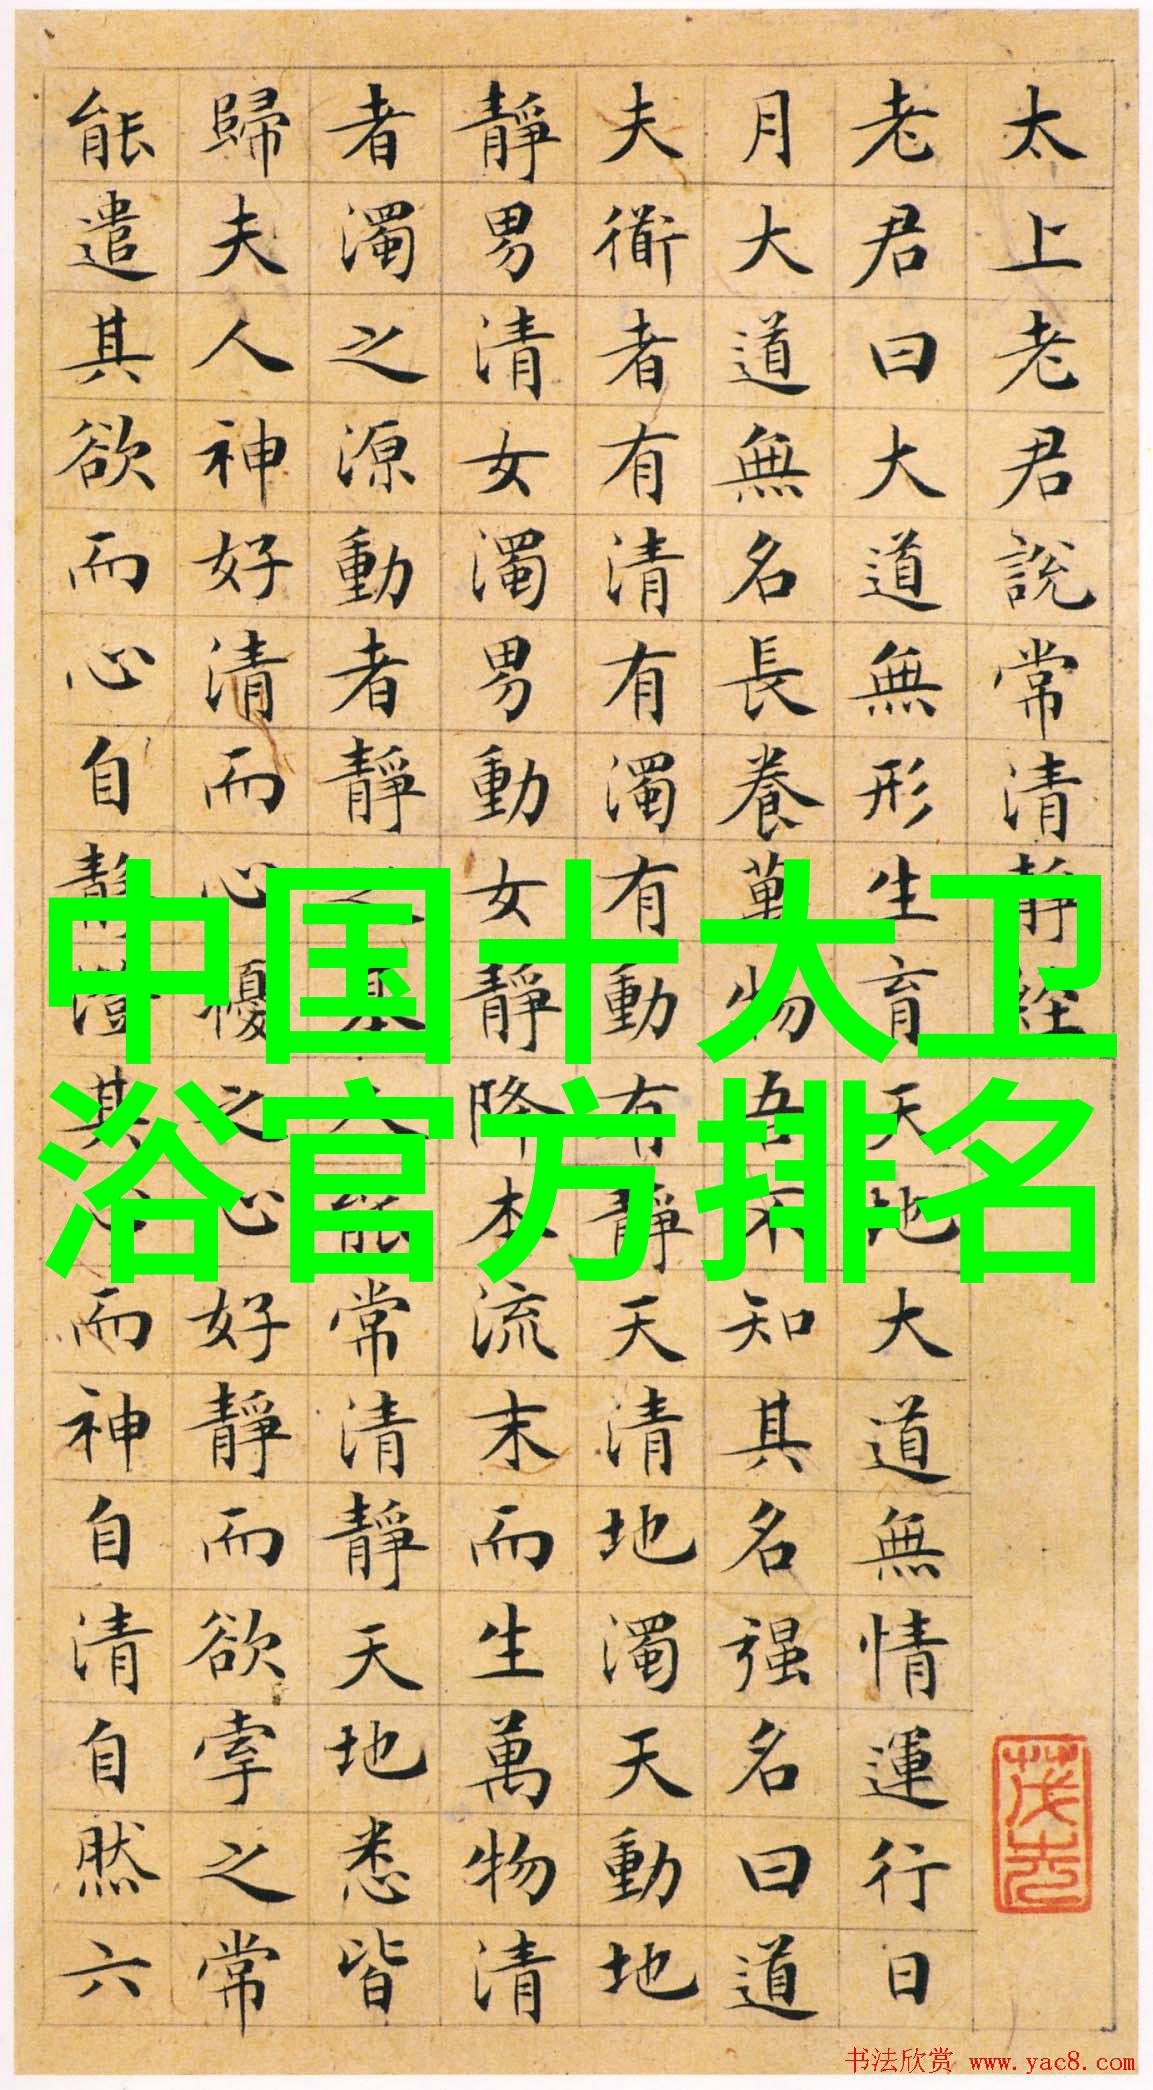 太上老君說常清静經
老君曰大道無形生育天地大道無情運行日
月大道無名長養萬物吾不知其名强名曰道
夫衜者有清有濁有動有靜天清地濁天動地
靜男清女濁男動女靜降本流末而生萬物清
者濁之源動者靜之基人能常清靜天地悉皆
歸夫人神好清而心擾之心好靜而欲牽之常
能遣其欲而心自靜澄其心而神自清自然六
中国十大卫
浴官方排名
书法欣赏 www.yac8.com